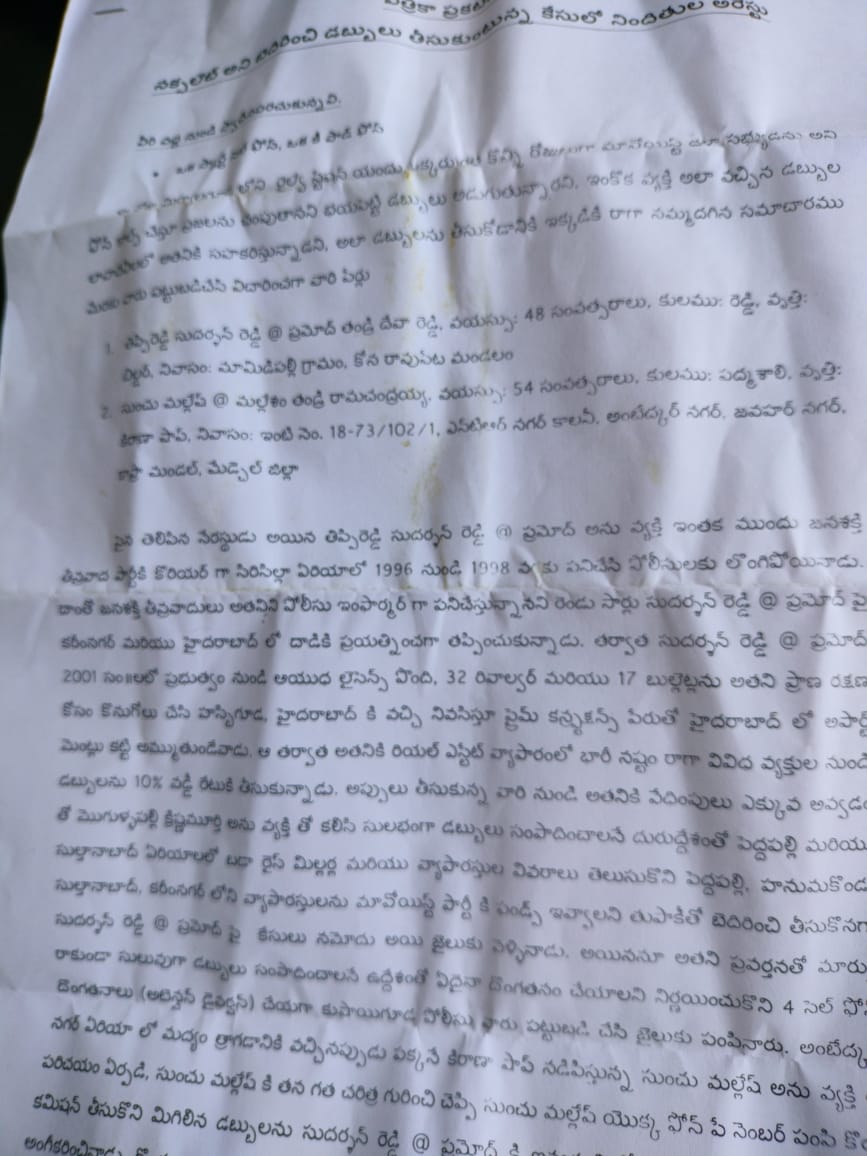 పత్రికా ప్రకట
నక్సలైట్ అని బెదిరించి డబ్బులు తీసుకుంటున్న కేసులో నిందితుల అరెస్టు
వీరి వద్ద నుండి స్వాధీనపరచుకున్నవి.
కొన్ని రోజులుగా మావోయిస్ట్ సభ్యుడను అని
ఫోన్ కాల్స్ చేస్తూ ప్రజలను చంపుతానని భయపెట్టి డబ్బులు అడుగుతున్నాడని, ఇంకొక వ్యక్తి అలా వచ్చిన డబ్బుల
లావాదేవీలలో అతనికి సహకరిస్తున్నాడని, అలా డబ్బులను తీసుకోడానికి ఇక్కడికి రాగా నమ్మదగిన సమాచారము
మేరకు వారు పట్టుబడిచేసి విచారించగా వారి పేర్లు
1. తిప్పిరెడ్డి సుదర్శన్ రెడ్డి @ ప్రమోద్ తండ్రి దేవా రెడ్డి, వయస్సు: 48 సంవత్సరాలు, కులము: రెడ్డి, వృత్తి:
బిల్డర్, నివాసం: మామిడిపల్లి గ్రామం, కోన రావుపేట మండలం
2. సుంచు మల్లేష్ @ మల్లేశం తండ్రి రామచంద్రయ్య, వయస్సు: 54 సంవత్సరాలు, కులము: పద్మశాలి, వృత్తి:
కిరాణా షాప్, నివాసం: ఇంటి నెం. 18-73/102/1, ఎన్‌టిఆర్ నగర్ కాలనీ, అంబేద్కర్ నగర్, జవహర్ నగర్,
కాప్రా మండల్, మేడ్చల్ జిల్లా
పైన తెలిపిన నేరస్థుడు అయిన తిప్పిరెడ్డి సుదర్శన్ రెడ్డి @ ప్రమోద్ అను వ్యక్తి ఇంతక ముందు జనశక్తి
తీవ్రవాద పార్టీకి కొరియర్ గా సిరిసిల్లా ఏరియాలో 1996 నుండి 1998 వరకు పనిచేసి పోలీసులకు లొంగిపోయినాడు.
దాంతో జనశక్తి తీవ్రవాదులు అతనిని పోలీసు ఇంఫార్మర్ గా పనిచేస్తున్నానని రెండు సార్లు సుదర్శన్ రెడ్డి @ ప్రమోద్ పై
కరీంనగర్ మరియు హైదరాబాద్ లో దాడికి ప్రయత్నించగా తప్పించుకున్నాడు. తర్వాత సుదర్శన్ రెడ్డి @ ప్రమోద్
2001 సం||లలో ప్రభుత్వం నుండి ఆయుధ లైసెన్స్ పొంది, 32 రివాల్వర్ మరియు 17 బుల్లెట్లను అతని ప్రాణ రక్షణ
కోసం కొనుగోలు చేసి హస్తిగూడ, హైదరాబాద్ కి వచ్చి నివసిస్తూ ప్రైమ్ కన్స్ట్రకషన్స్ పేరుతో హైదరాబాద్ లో అపార్ట్
మెంట్లు కట్టి అమ్ముతుండేవాడు. ఆ తర్వాత అతనికి రియల్ ఎస్టేట్ వ్యాపారంలో భారీ నష్టం రాగా వివిధ వ్యక్తుల నుండి
డబ్బులను 10% వడ్డీ రేటుకి తీసుకున్నాడు. అప్పులు తీసుకున్న వారి నుండి అతనికి వేదింపులు ఎక్కువ అవ్వడం
తో మొగుళ్ళపల్లి క్రిష్ణమూర్తి అను వ్యక్తి తో కలిసి సులభంగా డబ్బులు సంపాదించాలనే దురుద్దేశంతో పెద్దపల్లి మరియు
సుల్తానాబాద్ ఏరియాలలో బడా రైస్ మిల్లర్ల మరియు వ్యాపారస్తుల వివరాలు తెలుసుకొని పెద్దపల్లి, హనుమకొండ
సుల్తానాబాద్, కరీంనగర్ లోని వ్యాపారస్తులను మావోయిస్ట్ పార్టీ కి ఫండ్స్ ఇవ్వాలని తుపాకీతో బెదిరించి తీసుకొనగా
సుదర్శన్ రెడ్డి @ ప్రమోద్ పై కేసులు నమోదు అయి జైలుకు వెళ్ళినాడు. అయిననూ అతని ప్రవర్తనతో మారు
రాకుండా సులువుగా డబ్బులు సంపాదించాలనే ఉద్దేశంతో ఏదైనా దొంగతనం చేయాలని నిర్ణయించుకొని 4 సెల్ ఫోన్
దొంగతనాలు (అటెన్షన్ డైవర్షన్) చేయగా కుషాయిగూడ పోలీసు వారు పట్టుబడి చేసి జైలుకు పంపినారు. అంబేద్క
నగర్ ఏరియా లో మద్యం త్రాగడానికి వచ్చినప్పుడు పక్కనే కిరాణా షాప్ నడిపిస్తున్న సుంచు మల్లేష్ అను వ్యక్తి
పరిచయం ఏర్పడి, సుంచు మల్లేష్ కి తన గత చరిత్ర గురించి చెప్పి సుంచు మల్లేష్ యొక్క ఫోన్ పే నెంబర్ పంపి కొ
కమిషన్ తీసుకొని మిగిలిన డబ్బులను సుదర్శన్ రెడ్డి @ ప్రమోద్ కి
అంగీకరించినాడు